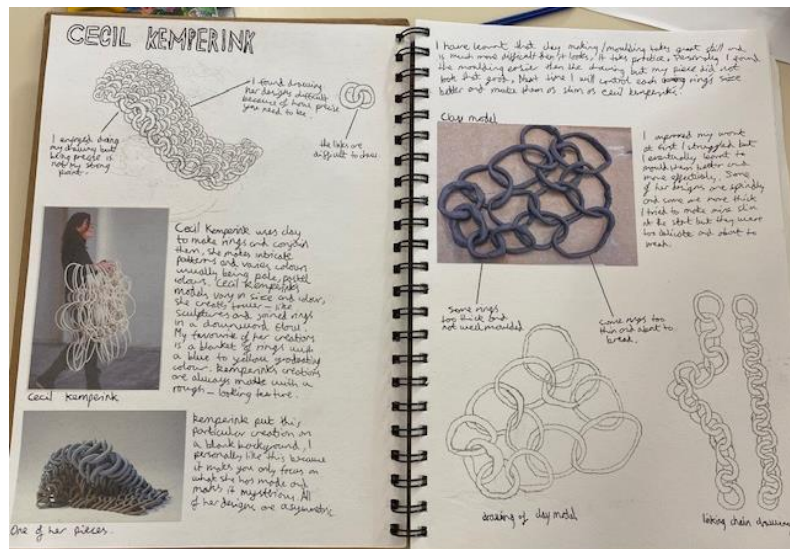 CECIL KEMPERINK
I found drawing
her designs difficult
because of how precise
you need to be.
the links are
difficult to draw.
I enjoyed doing
my drawing but
being precise is
not my strong
point.
Cecil Kemperink uses clay
to make rings and conjoin
them, she makes intricate
patterns and varies colours
usually being pale, pastel
colours. Cecil Kemperinks
models vary in size and colour,
she creates tower-like
sculptures and joined rings
in a downward flow.
My favourite of her creations
is a blanket of rings with
a blue to yellow
colour. Kemperinks creations
are always made with a
rough-looking texture.
Cecil Kemperink
Kemperink put this
particular creation on
a blank background, I
personally like this because
it makes you only focus on
what she has made and
makes it mysterious. All
of her designs are asymmetric
One of her pieces.
I have learnt that clay making/moulding takes great skill and
is much more difficult than it looks, it takes practice. Personally I found
the moulding easier than the drawing but my piece did not
look that good. Next time I will control each rings size
better and make them as slim as Cecil Kemperink.
Clay model
I improved my work
at first I struggled but
I eventually learnt to
mould them better and
more effectively. Some
of her designs are spindly
and some are more thick
I tried to make mine slim
at the start but they were
too delicate and about to
break.
Some rings
too thick and
not well moulded
some rings too
thin and about to
break.
drawing of clay model
linking chain drawing